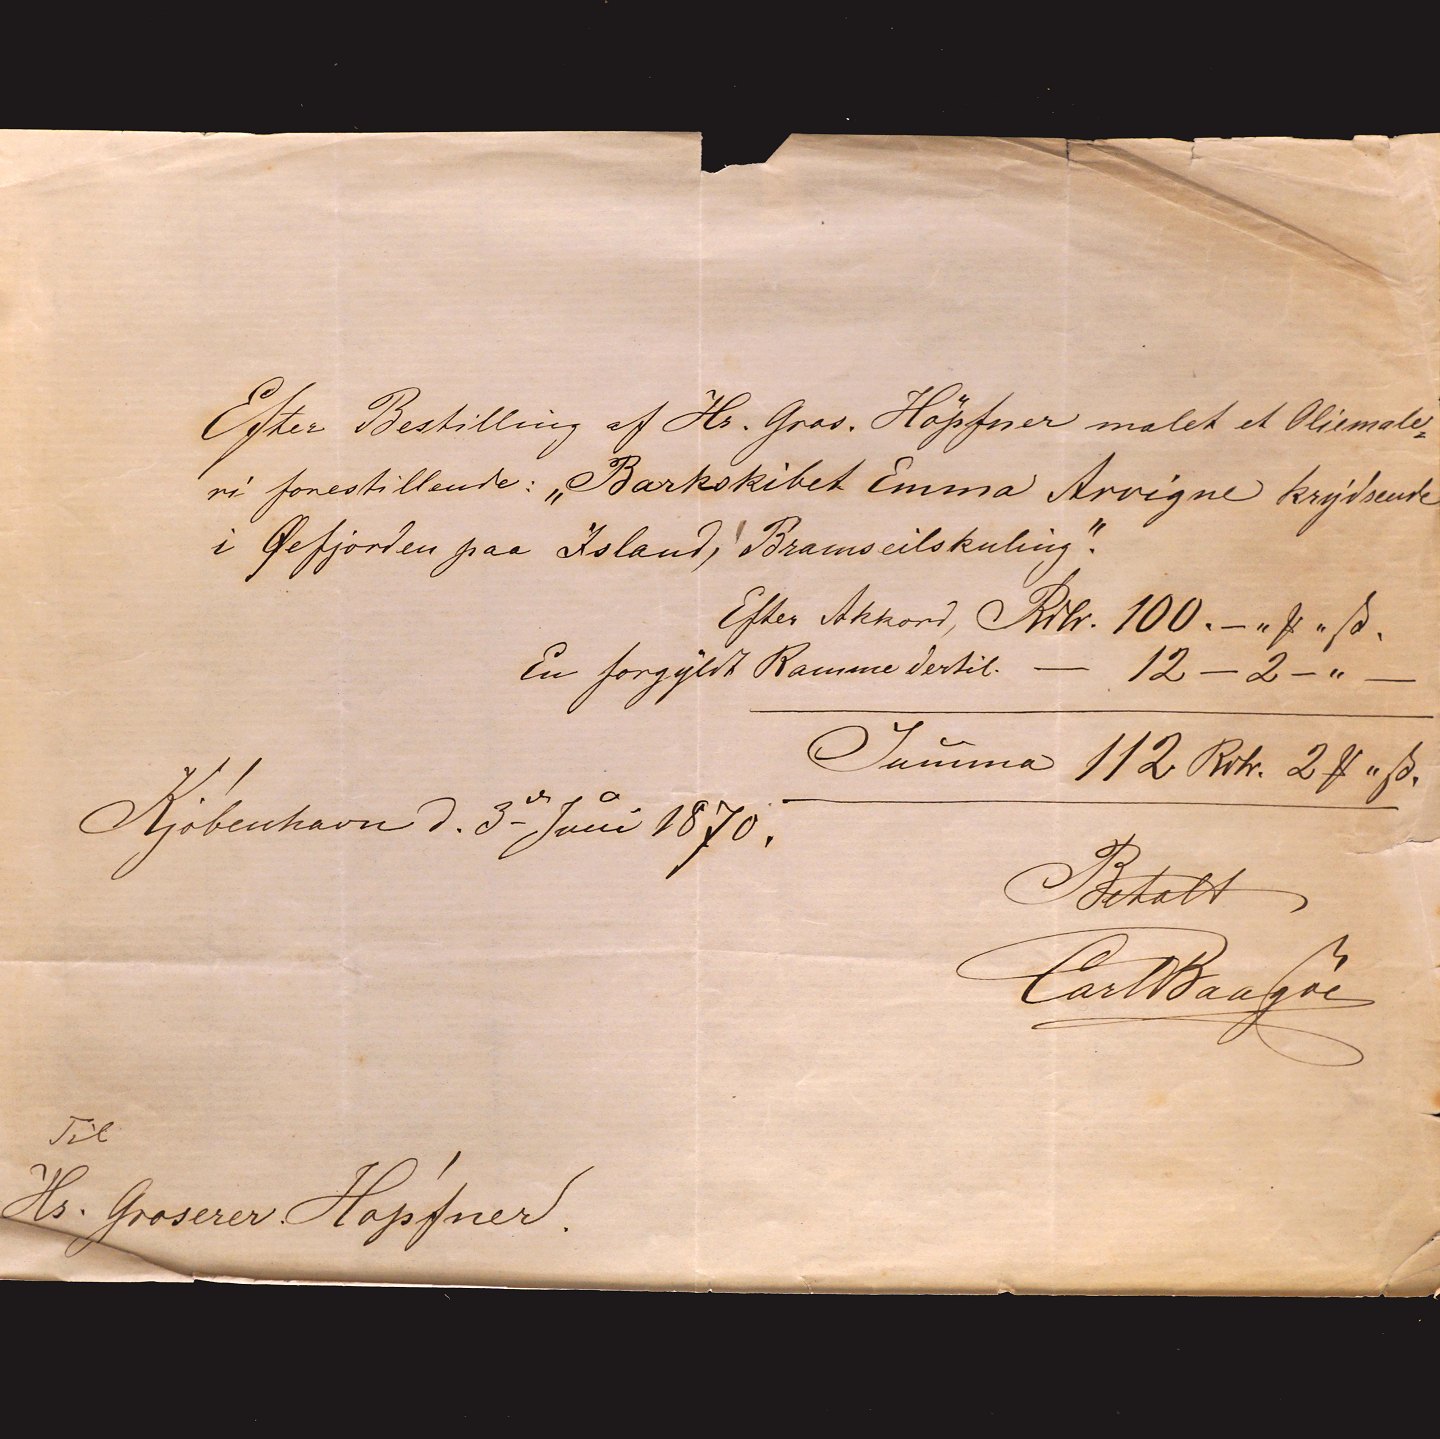 Efter Bestilling af Hr. Gros. Höpfner malet et Oliemale=
ri forestillende: „Barkskibet Emma Arvigne krÿdsende
i Øefjorden paa Island, i Bramseilskuling".
Efter Akkord, Rdlr. 100. — „ ꝟ „ ß.
En forgÿldt Ramme dertil. — 12 — 2 — „ —
Summa 112 Rdlr. 2 ꝟ „ ß.
Kjöbenhavn d. 3die Juni 1870.
Betalt
Carl Baagöe
Til
Hr. Grosserer Höpfner.